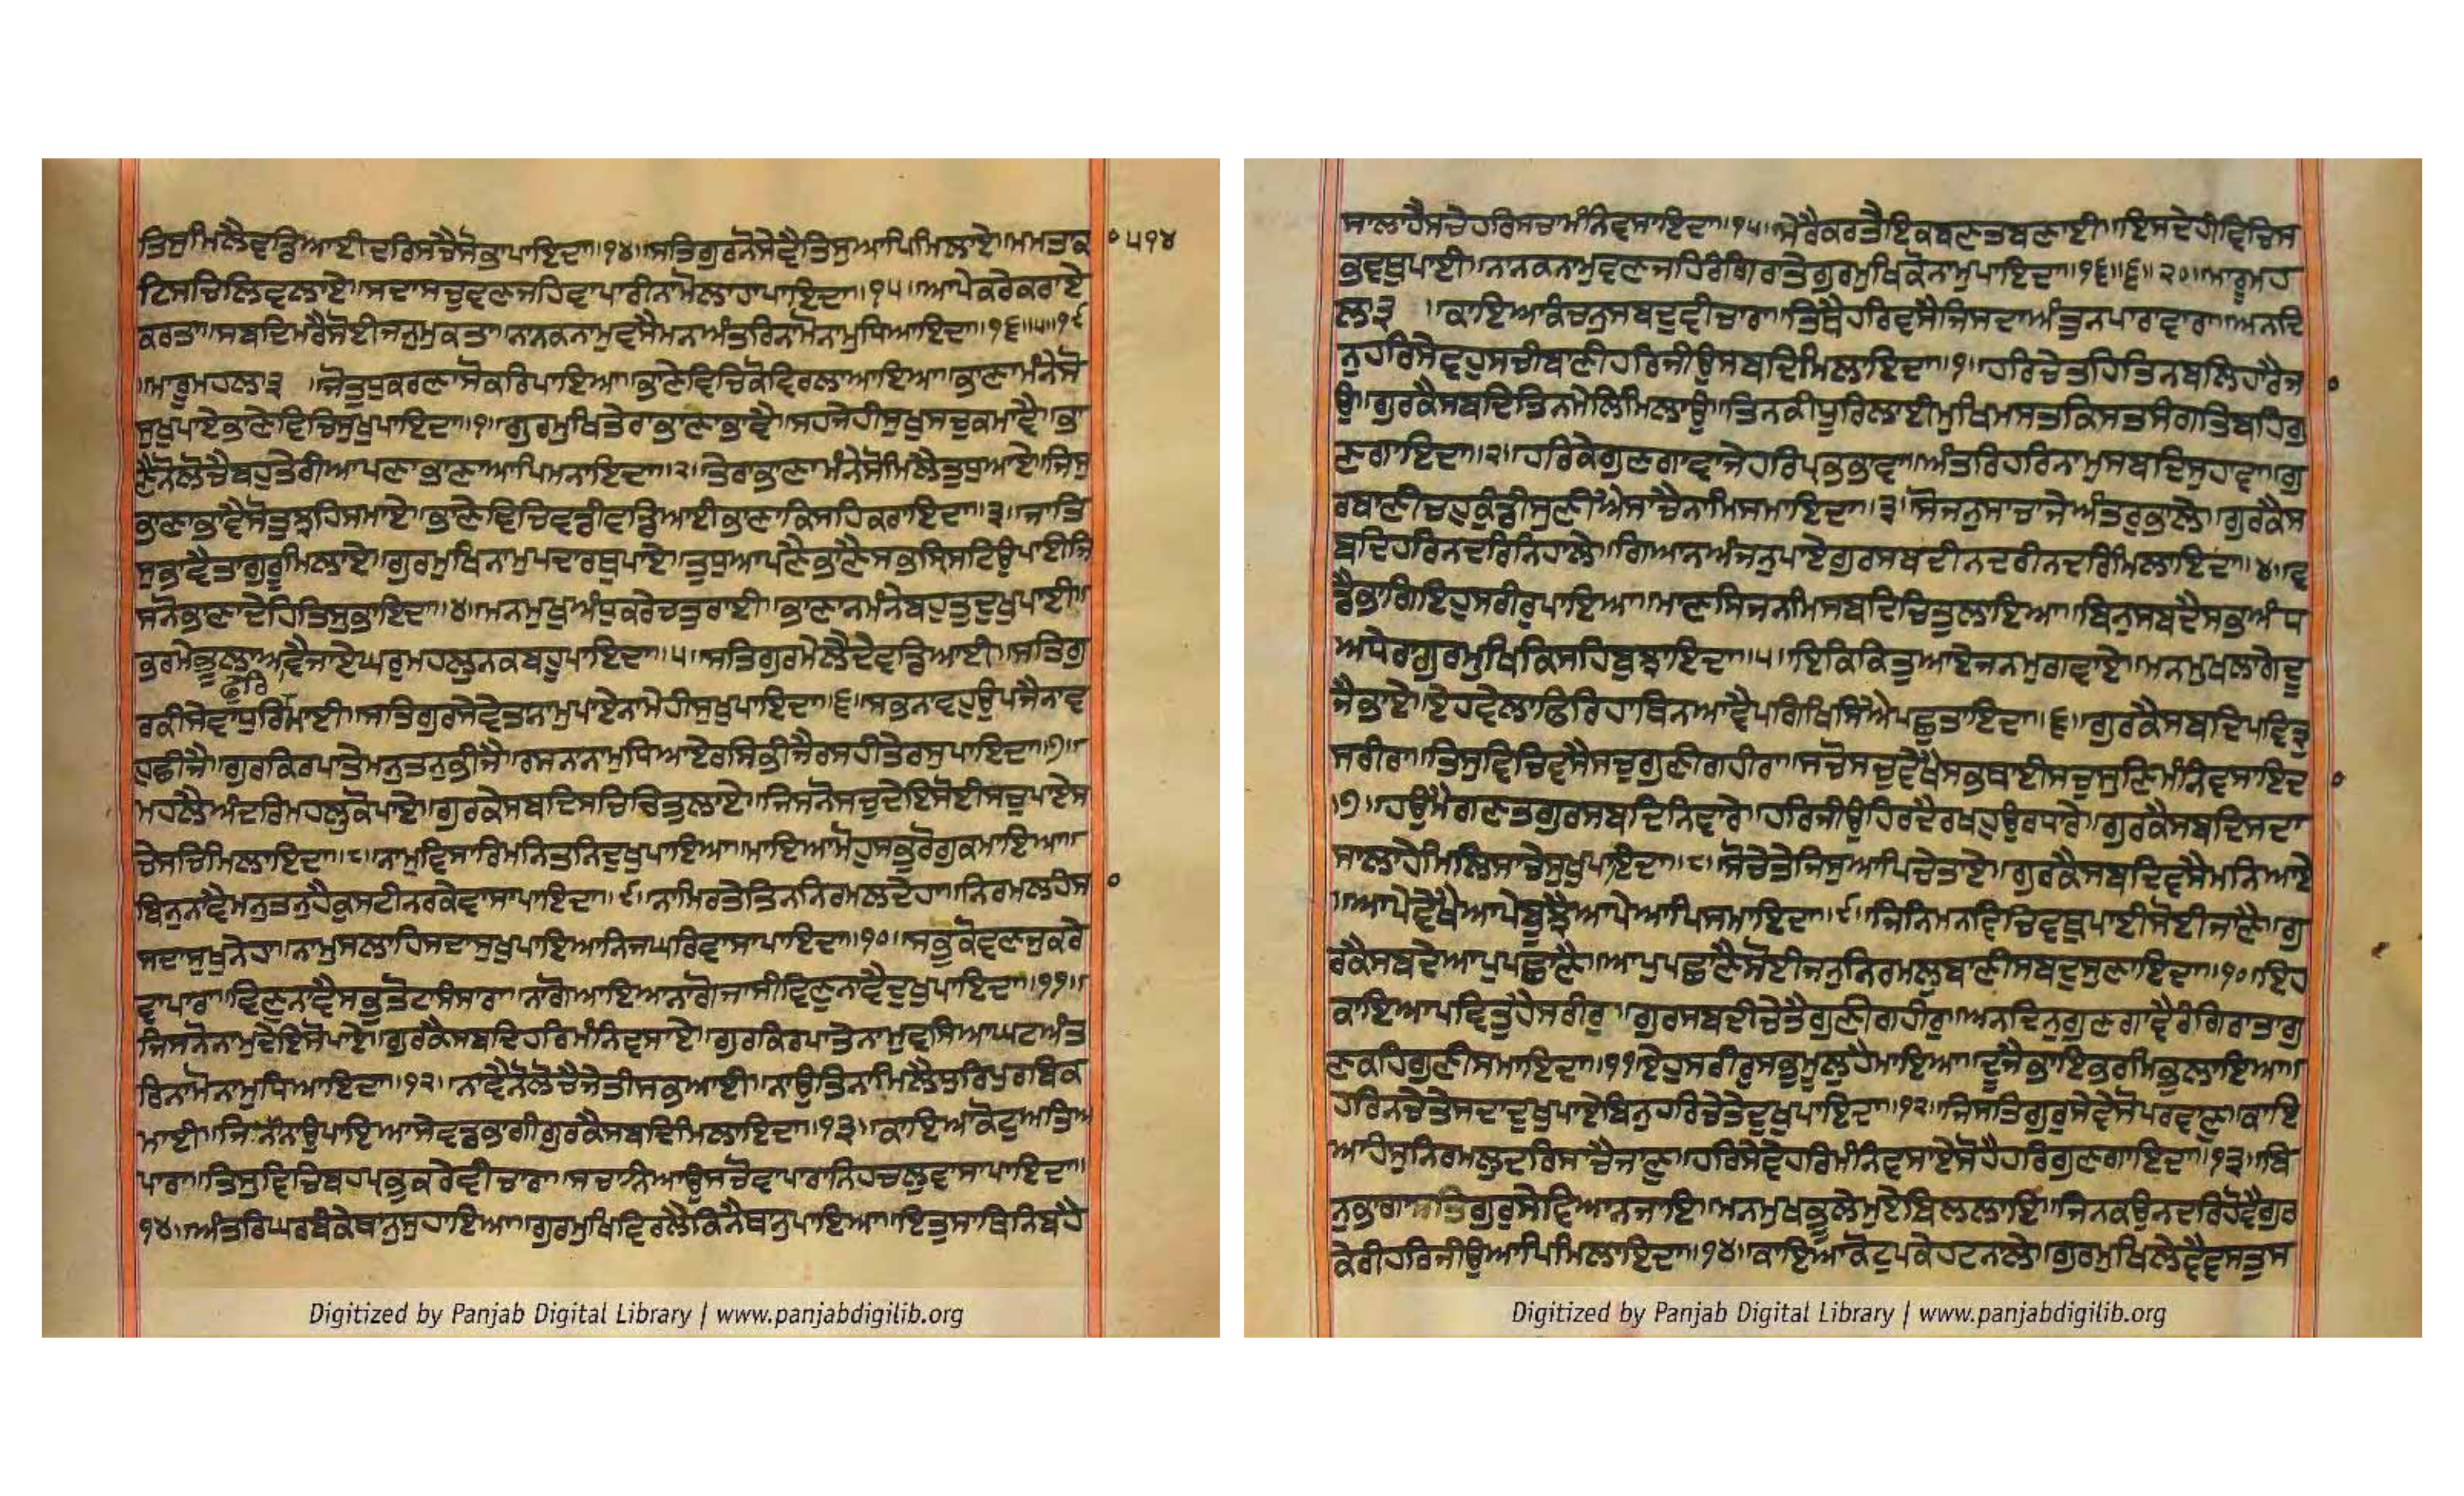 ਤਿਸੁਮਿਲੈਵਡਿਆਈਦਰਿਸਚੈਸੋਭਾਪਾਇਦਾ॥੧੪॥ਸਤਿਗੁਰਨੋਸੇਵੈਤਿਸੁਆਪਿਮਿਲਾਏ॥ਮਮਤਾਕ
੫੧੪
ਟਿਸਚਿਲਿਵਲਾਏ॥ਸਦਾਸਚੁਵਣਜਹਿਵਾਪਾਰੀਨਾਮੋਲਾਹਾਪਾਇਦਾ॥੧੫॥ਆਪੇਕਰੇਕਰਾਏ
ਕਰਤਾ॥ਸਬਦਿਮਰੈਸੋਈਜਨੁਮੁਕਤਾ॥ਨਾਨਕਨਾਮੁਵਸੈਮਨਅੰਤਰਿਨਾਮੋਨਾਮੁਧਿਆਇਦਾ॥੧੬॥੫॥੧੯
॥ਮਾਰੂਮਹਲਾ੩ ॥ਜੋਤੁਧੁਕਰਣਾਸੋਕਰਿਪਾਇਆ॥ਭਾਣੇਵਿਚਿਕੋਵਿਰਲਾਆਇਆ॥ਭਾਣਾਮੰਨੇਸੋ
ਸੁਖੁਪਾਏਭਾਣੇਵਿਚਿਸੁਖੁਪਾਇਦਾ॥੧॥ਗੁਰਮੁਖਿਤੇਰਾਭਾਣਾਭਾਵੈ॥ਸਹਜੇਹੀਸੁਖੁਸਚੁਕਮਾਵੈ॥ਭਾ
ਣੈਨੋਲੋਚੈਬਹੁਤੇਰੀਆਪਣਾਭਾਣਾਆਪਿਮਨਾਇਦਾ॥੨॥ਤੇਰਾਭਾਣਾਮੰਨੇਸੋਮਿਲੈਤੁਧੁਆਏ॥ਜਿਸੁ
ਭਾਣਾਭਾਵੈਸੋਤੁਝਹਿਸਮਾਏ॥ਭਾਣੇਵਿਚਿਵਡੀਵਡਿਆਈਭਾਣਾਕਿਸਹਿਕਰਾਇਦਾ॥੩॥ਜਾਤਿ
ਸੁਭਾਵੈਤਾਗੁਰੂਮਿਲਾਏ॥ਗੁਰਮੁਖਿਨਾਮੁਪਦਾਰਥੁਪਾਏ॥ਤੁਧੁਆਪਣੈਭਾਣੈਸਭਸ੍ਰਿਸਟਿਉਪਾਈਜਿ
ਸਨੋਭਾਣਾਦੇਹਿਤਿਸੁਭਾਇਦਾ॥੪॥ਮਨਮੁਖੁਅੰਧੁਕਰੇਚਤੁਰਾਈ॥ਭਾਣਾਨਮੰਨੇਬਹੁਤੁਦੁਖੁਪਾਈ॥
ਭਰਮੇਭੂਲਾਆਵੈਜਾਏਘਰੁਮਹਲੁਨਕਬਹੂਪਾਇਦਾ॥੫॥ਸਤਿਗੁਰਮੇਲੈਦੇਵਡਿਆਈ॥ਸਤਿਗੁ
ਰਕੀਸੇਵਾਧੁਰਿਫੁਰਮਾਈ॥ਸਤਿਗੁਰਸੇਵੇਤਾਨਾਮੁਪਾਏਨਾਮੇਹੀਸੁਖੁਪਾਇਦਾ॥੬॥ਸਭਨਾਵਹੁਉਪਜੈਨਾਵ
ਹੁਛੀਜੈ॥ਗੁਰਕਿਰਪਾਤੇਮਨੁਤਨੁਭੀਜੈ॥ਰਸਨਾਨਾਮੁਧਿਆਏਰਸਿਭੀਜੈਰਸਹੀਤੇਰਸੁਪਾਇਦਾ॥੭॥
ਮਹਲੈਅੰਦਰਿਮਹਲੁਕੋਪਾਏ॥ਗੁਰਕੇਸਬਦਿਸਚਿਚਿਤੁਲਾਏ॥ਜਿਸਨੋਸਚੁਦੇਇਸੋਈਸਚੁਪਾਏਸ
ਚੇਸਚਿਮਿਲਾਇਦਾ॥੮॥ਨਾਮੁਵਿਸਾਰਿਮਨਿਤਨਿਦੁਖੁਪਾਇਆ॥ਮਾਇਆਮੋਹੁਸਭੁਰੋਗੁਕਮਾਇਆ॥
ਬਿਨੁਨਾਵੈਮਨੁਤਨੁਹੈਕੁਸਟੀਨਰਕੇਵਾਸਾਪਾਇਦਾ॥੯॥ਨਾਮਿਰਤੇਤਿਨਨਿਰਮਲਦੇਹਾ॥ਨਿਰਮਲਹੰਸ
ਸਦਾਸੁਖੁਨੇਹਾ॥ਨਾਮੁਸਲਾਹਿਸਦਾਸੁਖੁਪਾਇਆਨਿਜਘਰਿਵਾਸਾਪਾਇਦਾ॥੧੦॥ਸਭੁਕੋਵਣਜੁਕਰੇ
ਵਾਪਾਰਾ॥ਵਿਣੁਨਾਵੈਸਭੁਤੋਟਾਸੰਸਾਰਾ॥ਨਾਗੋਆਇਆਨਾਗੋਜਾਸੀਵਿਣੁਨਾਵੈਦੁਖੁਪਾਇਦਾ॥੧੧॥
ਜਿਸਨੋਨਾਮੁਦੇਇਸੋਪਾਏ॥ਗੁਰਕੈਸਬਦਿਹਰਿਮੰਨਿਵਸਾਏ॥ਗੁਰਕਿਰਪਾਤੇਨਾਮੁਵਸਿਆਘਟਅੰਤ
ਰਿਨਾਮੋਨਾਮੁਧਿਆਇਦਾ॥੧੨॥ਨਾਵੈਨੋਲੋਚੈਜੇਤੀਸਭਆਈ॥ਨਾਉਤਿਨਾਮਿਲੈਧੁਰਿਪੁਰਬਿਕ
ਮਾਈ॥ਜਿਨੀਨਾਉਪਾਇਆਸੇਵਡਭਾਗੀਗੁਰਕੈਸਬਦਿਮਿਲਾਇਦਾ॥੧੩॥ਕਾਇਆਕੋਟੁਅਤਿਅ
ਪਾਰਾ॥ਤਿਸੁਵਿਚਿਬਹਿਪ੍ਰਭੁਕਰੇਵੀਚਾਰਾ॥ਸਚਾਨਿਆਉਸਚੋਵਾਪਾਰਾਨਿਹਚਲੁਵਾਸਾਪਾਇਦਾ॥
੧੪॥ਅੰਤਰਿਘਰਬੰਕੇਥਾਨੁਸੁਹਾਇਆ॥ਗੁਰਮੁਖਿਵਿਰਲੈਕਿਨੈਥਾਨੁਪਾਇਆ॥ਇਤੁਸਾਥਿਨਿਬਹੈ
Digitized by Panjab Digital Library | www.panjabdigilib.org
ਸਾਲਾਹੈਸਚੇਹਰਿਸਚਾਮੰਨਿਵਸਾਇਦਾ॥੧੫॥ਮੇਰੈਕਰਤੈਇਕਬਣਤਬਣਾਈ॥ਇਸਦੇਹੀਵਿਚਿਸ
ਭਵਥੁਪਾਈ॥ਨਾਨਕਨਾਮੁਵਣਜਹਿਰੰਗਿਰਾਤੇਗੁਰਮੁਖਿਕੋਨਾਮੁਪਾਇਦਾ॥੧੬॥੬॥੨੦॥ਮਾਰੂਮਹ
ਲਾ੩ ॥ਕਾਇਆਕੰਚਨੁਸਬਦੁਵੀਚਾਰਾ॥ਤਿਥੈਹਰਿਵਸੈਜਿਸਦਾਅੰਤੁਨਪਾਰਾਵਾਰਾ॥ਅਨਦਿ
ਨੁਹਰਿਸੇਵਹੁਸਚੀਬਾਣੀਹਰਿਜੀਉਸਬਦਿਮਿਲਾਇਦਾ॥੧॥ਹਰਿਚੇਤਹਿਤਿਨਬਲਿਹਾਰੈਜਾ
ਉ॥ਗੁਰਕੈਸਬਦਿਤਿਨਮੇਲਿਮਿਲਾਉ॥ਤਿਨਕੀਧੂਰਿਲਾਈਮੁਖਿਮਸਤਕਿਸਤਸੰਗਤਿਬਹਿਗੁ
ਣਗਾਇਦਾ॥੨॥ਹਰਿਕੇਗੁਣਗਾਵਾਜੇਹਰਿਪ੍ਰਭਭਾਵਾ॥ਅੰਤਰਿਹਰਿਨਾਮੁਸਬਦਿਸੁਹਾਵਾ॥ਗੁ
ਰਬਾਣੀਚਹੁਕੁੰਡੀਸੁਣੀਐਸਾਚੈਨਾਮਿਸਮਾਇਦਾ॥੩॥ਸੋਜਨੁਸਾਚਾਜੇਅੰਤਰੁਭਾਲੇ॥ਗੁਰਕੈਸ
ਬਦਿਹਰਿਨਦਰਿਨਿਹਾਲੇ॥ਗਿਆਨਅੰਜਨੁਪਾਏਗੁਰਸਬਦੀਨਦਰੀਨਦਰਿਮਿਲਾਇਦਾ॥੪॥ਵ
ਡੈਭਾਗਿਇਹੁਸਰੀਰੁਪਾਇਆ॥ਮਾਣਸਜਨਮਿਸਬਦਿਚਿਤੁਲਾਇਆ॥ਬਿਨੁਸਬਦੈਸਭਅੰਧ
ਅੰਧੇਰਾਗੁਰਮੁਖਿਕਿਸਹਿਬੁਝਾਇਦਾ॥੫॥ਇਕਿਕਿਤੁਆਏਜਨਮੁਗਵਾਏ॥ਮਨਮੁਖਲਾਗੇਦੂ
ਜੈਭਾਏ॥ਏਹਵੇਲਾਫਿਰਿਹਾਥਿਨਆਵੈਪਗਿਖਿਸਿਐਪਛੁਤਾਇਦਾ॥੬॥ਗੁਰਕੈਸਬਦਿਪਵਿਤ੍ਰੁ
ਸਰੀਰਾ॥ਤਿਸੁਵਿਚਿਵਸੈਸਚੁਗੁਣੀਗਹੀਰਾ॥ਸਚੋਸਚੁਵੇਖੈਸਭਥਾਈਸਚੁਸੁਣਿਮੰਨਿਵਸਾਇਦਾ
॥੭॥ਹਉਮੈਗਣਤਗੁਰਸਬਦਿਨਿਵਾਰੇ॥ਹਰਿਜੀਉਹਿਰਦੈਰਖਹੁਉਰਧਾਰੇ॥ਗੁਰਕੈਸਬਦਿਸਦਾ
ਸਾਲਾਹੇਮਿਲਿਸਾਚੇਸੁਖੁਪਾਇਦਾ॥੮॥ਸੋਚੇਤੇਜਿਸੁਆਪਿਚੇਤਾਏ॥ਗੁਰਕੈਸਬਦਿਵਸੈਮਨਿਆਏ
॥ਆਪੇਵੇਖੈਆਪੇਬੂਝੈਆਪੇਆਪਿਸਮਾਇਦਾ॥੯॥ਜਿਨਿਮਨਵਿਚਿਵਥੁਪਾਈਸੋਈਜਾਣੈ॥ਗੁ
ਰਕੈਸਬਦੇਆਪੁਪਛਾਣੈ॥ਆਪੁਪਛਾਣੈਸੋਈਜਨੁਨਿਰਮਲੁਬਾਣੀਸਬਦੁਸੁਣਾਇਦਾ॥੧੦॥ਇਹ
ਕਾਇਆਪਵਿਤੁਹੈਸਰੀਰੁ॥ਗੁਰਸਬਦੀਚੇਤੈਗੁਣੀਗਹੀਰੁ॥ਅਨਦਿਨੁਗੁਣਗਾਵੈਰੰਗਿਰਾਤਾਗੁ
ਣਕਹਿਗੁਣੀਸਮਾਇਦਾ॥੧੧॥ਏਹੁਸਰੀਰੁਸਭਮੂਲੁਹੈਮਾਇਆ॥ਦੂਜੈਭਾਇਭਰਮਿਭੁਲਾਇਆ॥
ਹਰਿਨਚੇਤੇਸਦਾਦੁਖੁਪਾਏਬਿਨੁਹਰਿਚੇਤੇਦੁਖੁਪਾਇਦਾ॥੧੨॥ਜਿਸਤਿਗੁਰੁਸੇਵੇਸੋਪਰਵਾਣੁ॥ਕਾਇ
ਆਹੰਸੁਨਿਰਮਲੁਦਰਿਸਚੈਜਾਣੁ॥ਹਰਿਸੇਵੇਹਰਿਮੰਨਿਵਸਾਏਸੋਹੈਹਰਿਗੁਣਗਾਇਦਾ॥੧੩॥ਬਿ
ਨੁਭਾਗਾਸਤਿਗੁਰੁਸੇਵਿਆਨਜਾਇ॥ਮਨਮੁਖਭੂਲੇਮੁਏਬਿਲਲਾਇ॥ਜਿਨਕਉਨਦਰਿਹੋਵੈਗੁਰ
ਕੇਰੀਹਰਿਜੀਉਆਪਿਮਿਲਾਇਦਾ॥੧੪॥ਕਾਇਆਕੋਟੁਪਕੇਹਟਨਾਲੇ॥ਗੁਰਮੁਖਿਲੇਵੈਵਸਤੁਸ
Digitized by Panjab Digital Library | www.panjabdigilib.org